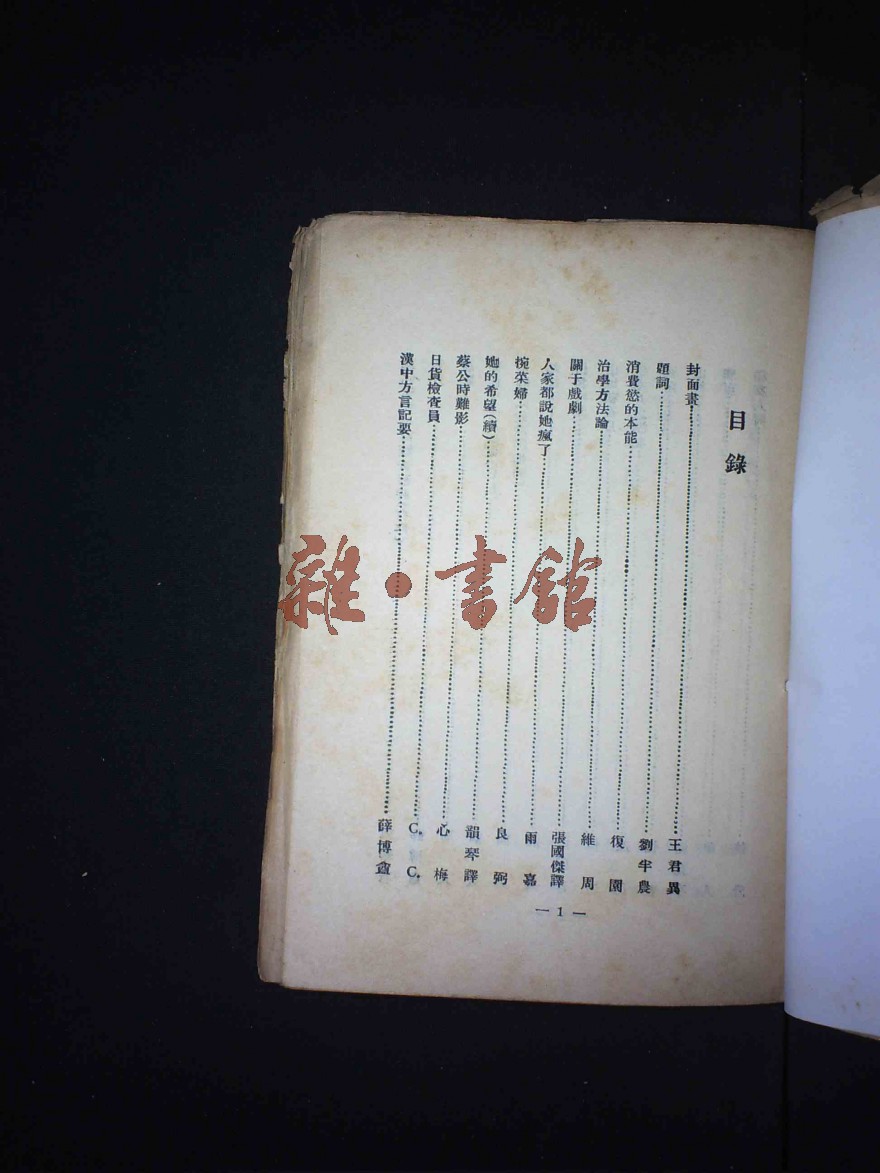 目錄
封面畫……王君異
題詞……劉半農
消費慾的本能……復園
治學方法論……維周
關于戲劇……張國傑譯
人家都說她瘋了……雨嘉
椀菜婦……良弼
她的希望(續)……韻琴譯
蔡公時難影……心梅
日貨檢查員……C. C.
漢中方言記要……薛博盦
— 1 —
雜·書館